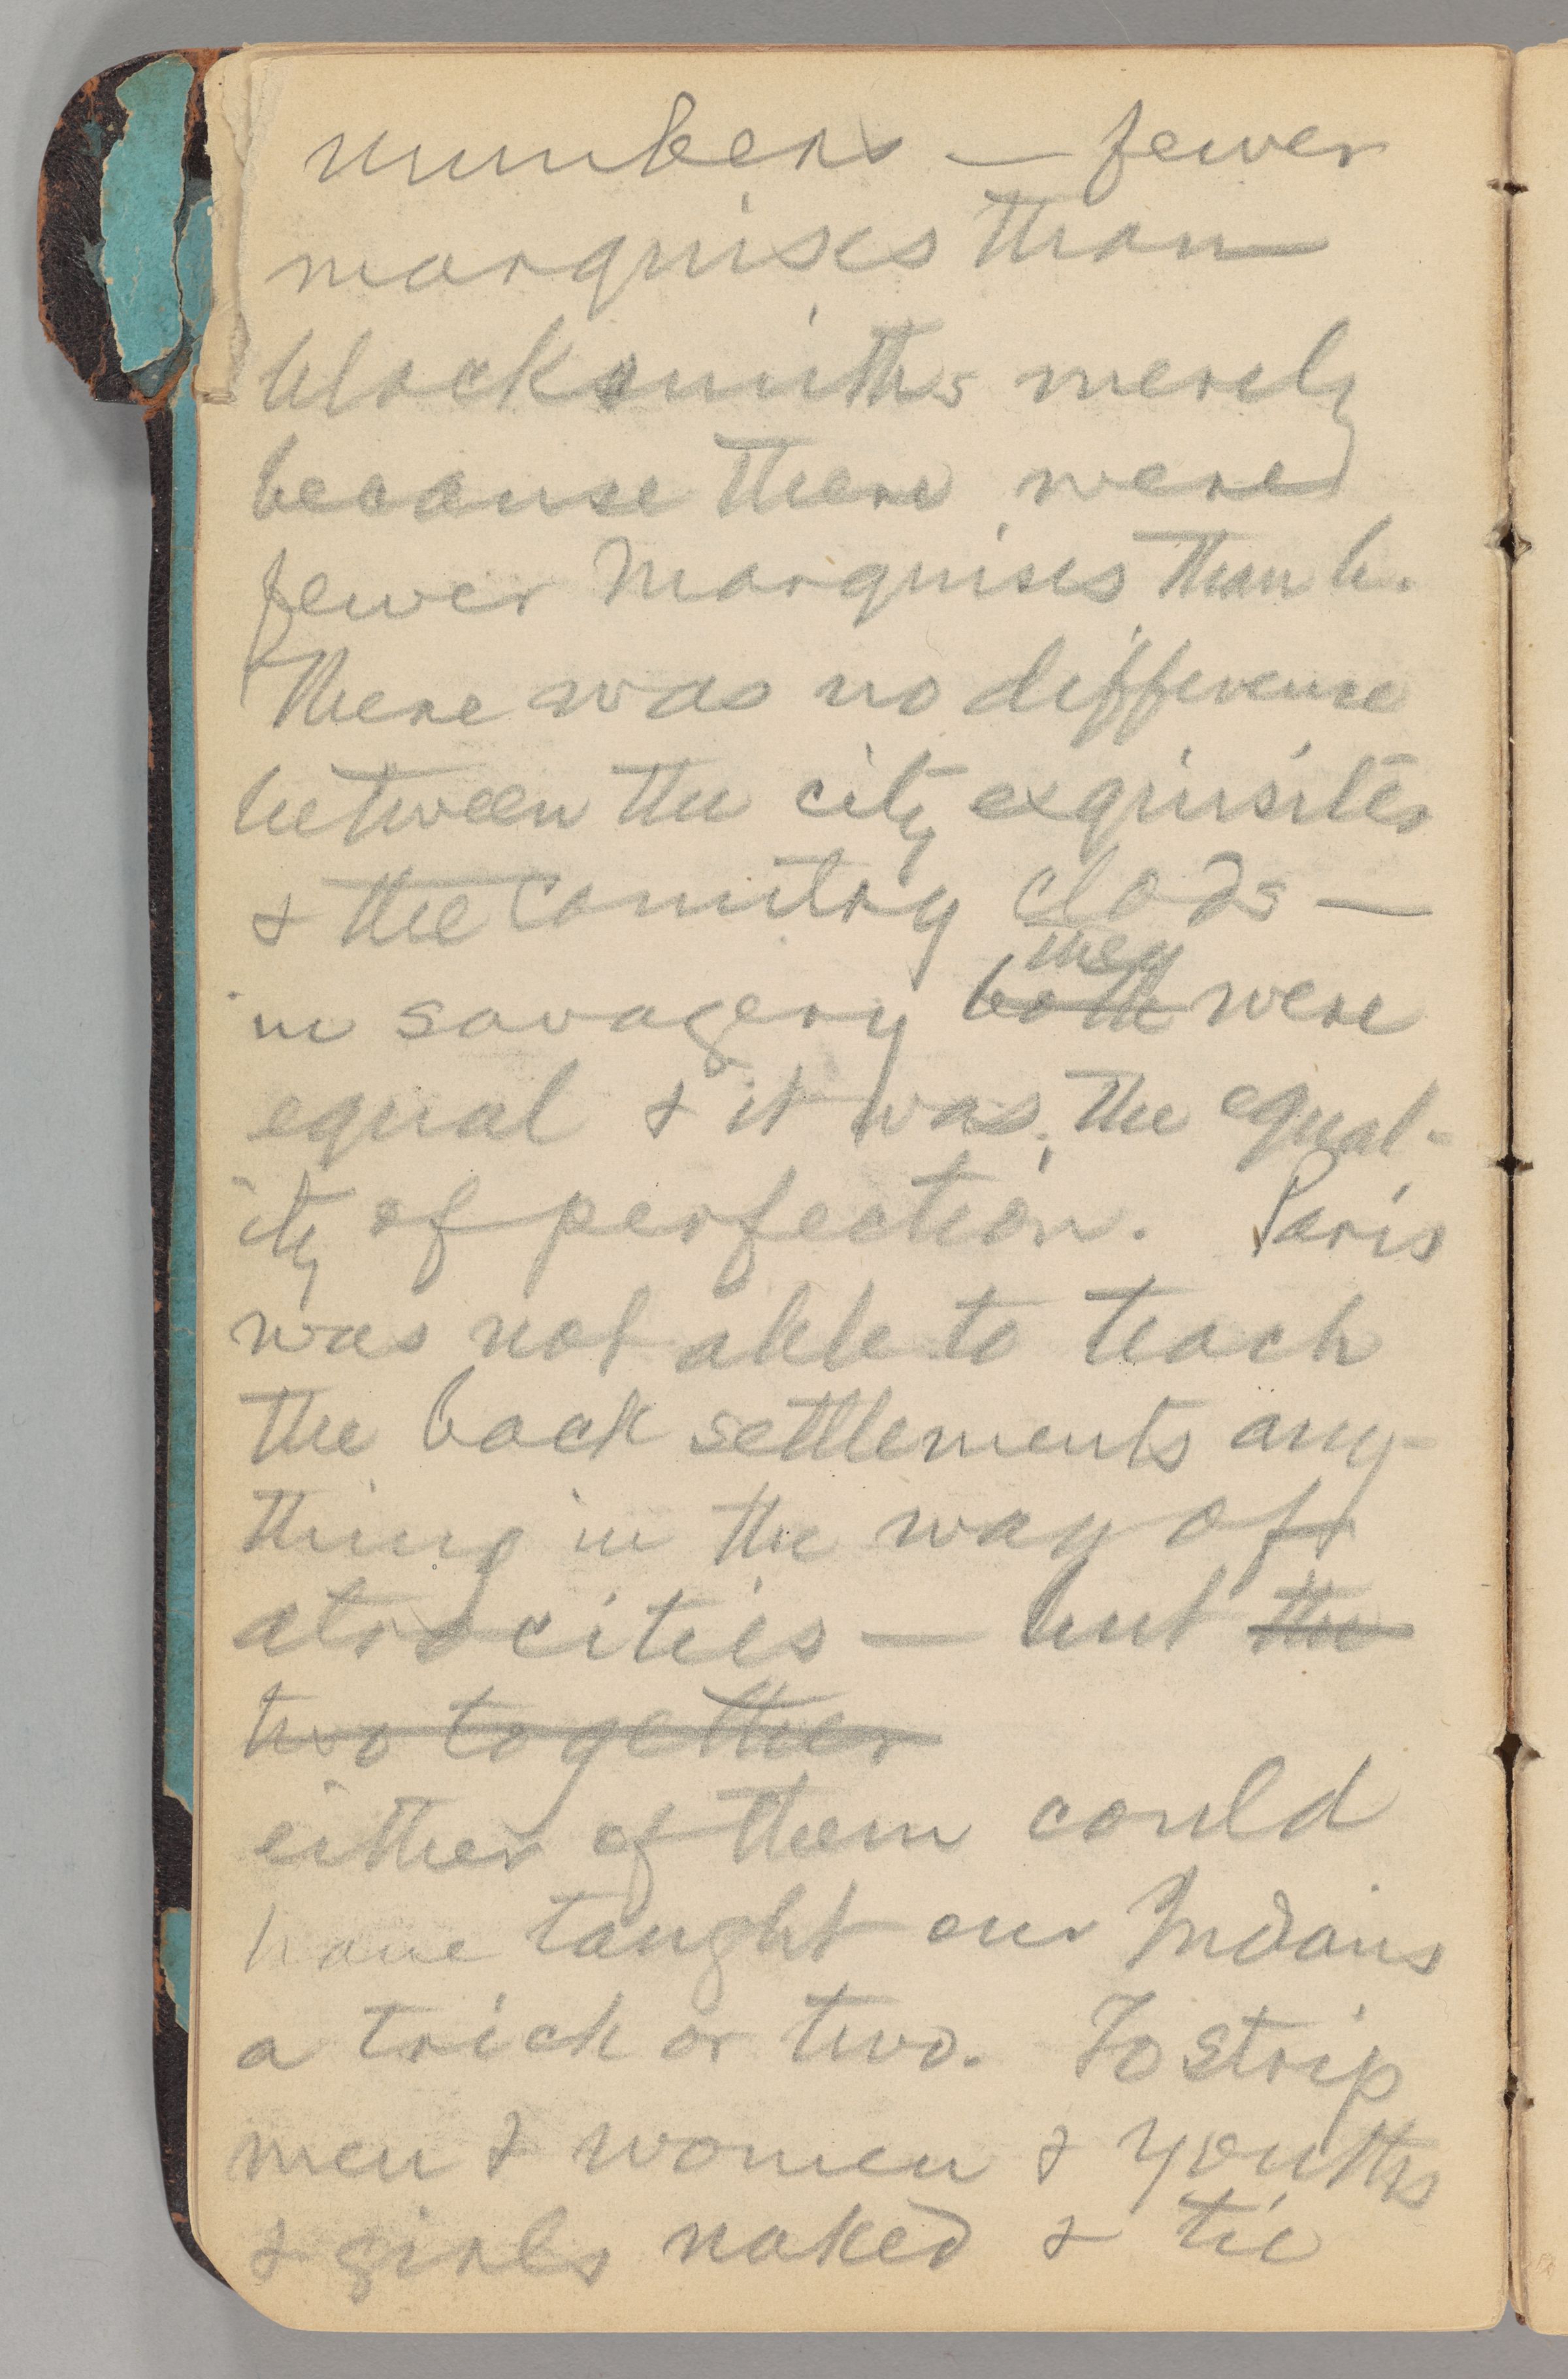 numbers — fewer
marquises than
blacksmiths merely
because there were
fewer Marquises than b.
There was no difference
between the city exquisites
& the country clods —
they
in savagery both were
equal & it was the equal-
ity of perfection. Paris
was not able to teach
the back settlements any-
thing in the way of
atrocities — but the
two together
either of them could
have taught our Indians
a trick or two. To strip
men & women & youths
& girls naked & tie